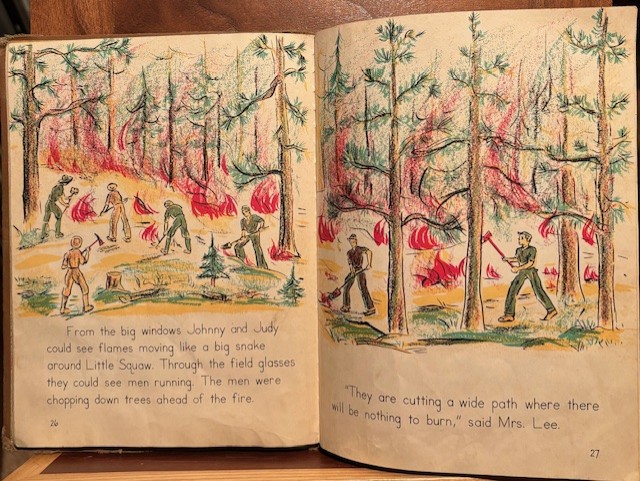 From the big windows Johnny and Judy
could see flames moving like a big snake
around Little Squaw. Through the field glasses
they could see men running. The men were
chopping down trees ahead of the fire.
26
"They are cutting a wide path where there
will be nothing to burn," said Mrs. Lee.
27